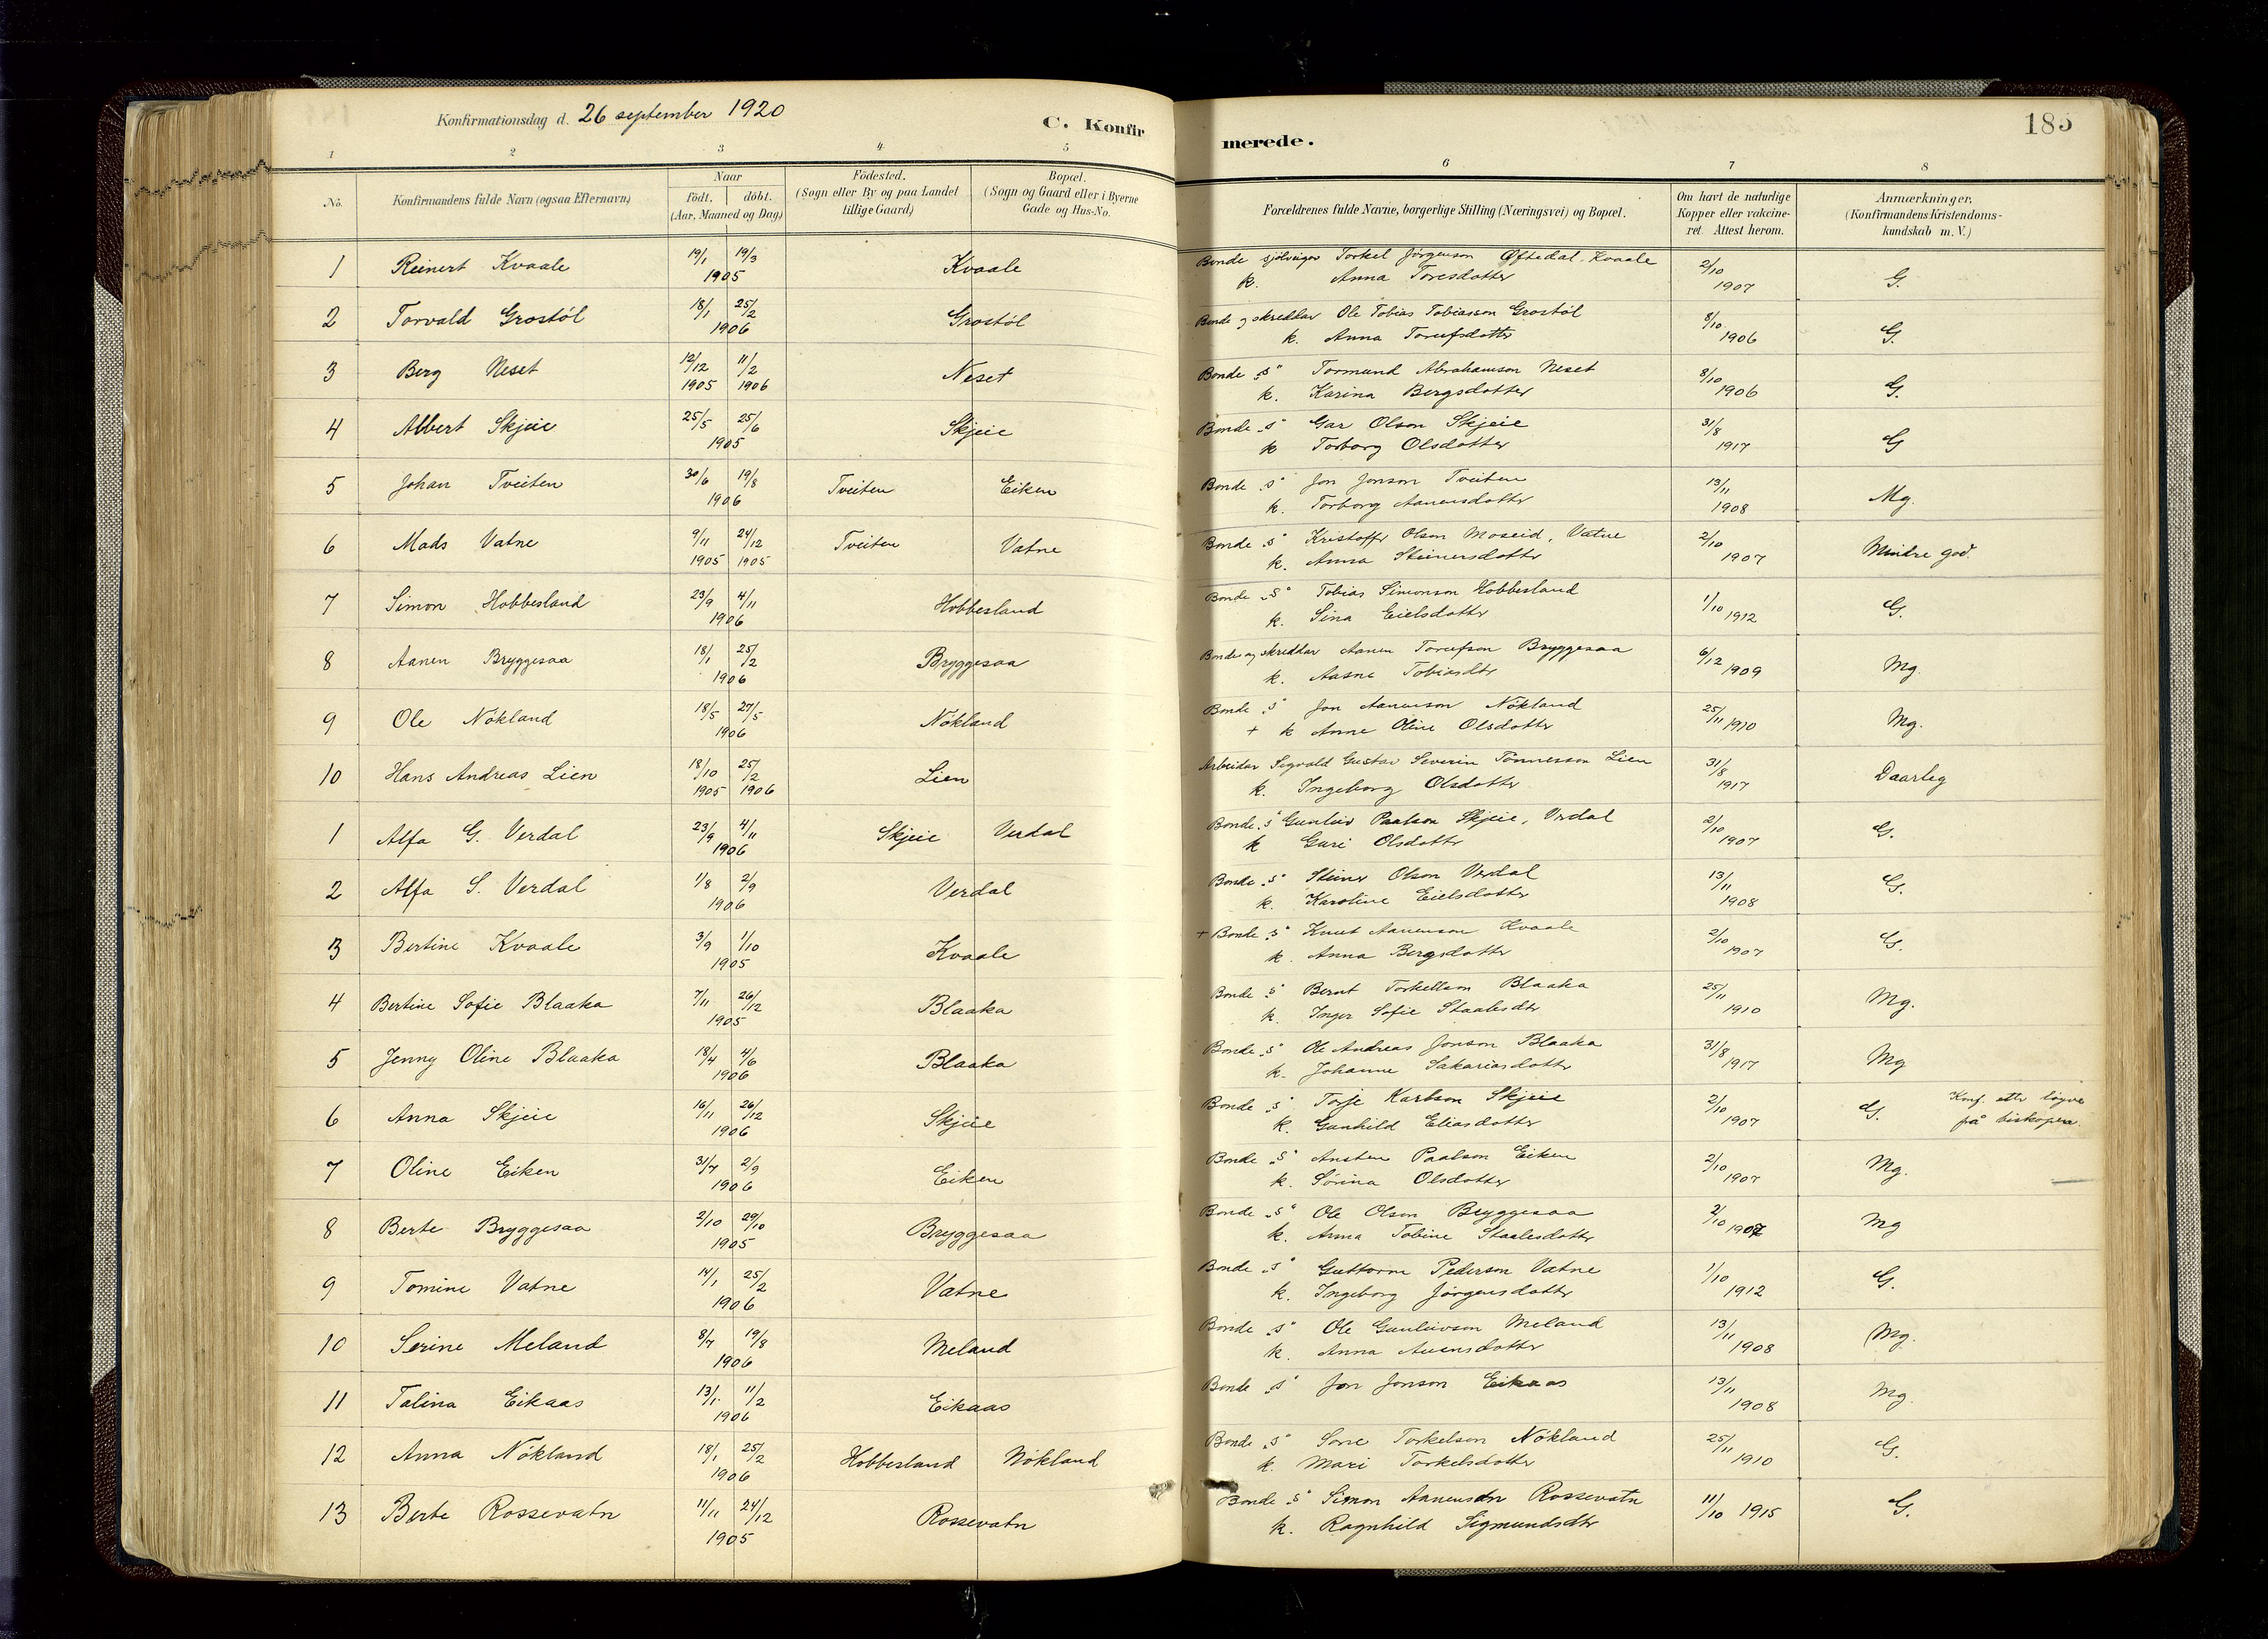 Konfirmationsdag d. 26 september 1920
C. Konfirmerede.
185
1 2 3 4 5 6 7 8
No.
Konfirmandens fulde Navn (ogsaa Efternavn)
Naar
födt. döbt.
(Aar, Maaned og Dag)
Födested.
(Sogn eller By og paa Landet
tillige Gaard)
Bopæl.
(Sogn og Gaard eller i Byerne
Gade og Hus-No.
Forældrenes fulde Navne, borgerlige Stilling (Næringsvei) og Bopæl.
Om havt de naturlige
Kopper eller vakcine-
ret. Attest herom.
Anmærkninger.
(Konfirmandens Kristendoms-
kundskab m. V.)
1 Reinert Kvaale 19/1 19/3 1905 Kvaale Bonde sjølveigar Torkel Jørgenson Øftedal-Kvaale 2/10 1907 G.
k. Anna Toresdotter
2 Torvald Grostöl 18/1 25/2 1906 Grostöl Bonde og skreddar Ole Tobias Tobiasson Grostöl 8/10 1906 G.
k. Anna Torufsdotter
3 Berg Neset 12/12 1905 11/2 1906 Neset Bonde „s“ Tormund Abrahamson Neset 8/10 1906 G.
k. Karina Bergsdotter
4 Albert Skjeie 25/5 25/6 1905 Skjeie Bonde „s“ Gar Olson Skjeie 31/8 1917 G
k Torborg Olsdotter
5 Johan Tveiten 30/6 19/8 1906 Tveiten Eiken Bonde „s“ Jon Jonson Tveiten 13/11 1908 Mg.
k. Torborg Aanensdotter
6 Mads Vatne 9/11 1905 24/12 1905 Tveiten Vatne Bonde „s“ Kristoffer Olson Moseid, Vatne 2/10 1907 Mindre god.
k. Anna Steinersdotter
7 Simon Hobbesland 23/9 4/11 1906 Hobbesland Bonde „s“ Tobias Simonson Hobbesland 1/10 1912 G.
k. Sina Eielsdotter
8 Aanen Bryggesaa 18/1 25/2 1906 Bryggesaa Bonde og skreddar Aanen Torufson Bryggesaa 6/12 1909 Mg.
k. Aasne Tobiasdtr
9 Ole Nökland 18/5 27/5 1906 Nökland Bonde „s“ Jon Aanenson Nökland 25/11 1910 Mg.
+ k Anne Oline Olsdotter
10 Hans Andreas Lien 18/10 1905 25/2 1906 Lien Arbeidar Sigvald Gustav Severin Tönnesson Lien 31/8 1917 Daarleg
k. Ingeborg Olsdotter
1 Alfa G. Verdal 23/9 4/11 1906 Skjeie Verdal Bonde „s“ Gunleiv Paalson Skjeie, Verdal 2/10 1907 G.
k Guri Olsdotter
2 Alfa S. Verdal 1/8 2/9 1906 Verdal Bonde „s“ Steiner Olson Verdal 13/11 1908 G.
k. Karoline Eielsdotter
3 Bertine Kvaale 3/9 1/10 1905 Kvaale + Bonde „s“ Knut Aanenson Kvaale 2/10 1907 G.
k. Anna Bergsdotter
4 Bertine Sofie Blaaka 7/11 26/12 1905 Blaaka Bonde „s“ Bernt Torkellson Blaaka 25/11 1910 Mg.
k. Inger Sofie Staalesdtr
5 Jenny Oline Blaaka 18/4 4/6 1906 Blaaka Bonde „s“ Ole Andreas Jonson Blaaka 31/8 1917 Mg
k. Johanne Sakariasdotter
6 Anna Skjeie 16/11 26/12 1906 Skjeie Bonde „s“ Torje Karlson Skjeie 2/10 1907 G. Konf. etter löyve
k. Gunhild Eliasdotter på biskopen.
7 Oline Eiken 31/7 2/9 1906 Eiken Bonde „s“ Ansten Paalson Eiken 2/10 1907 Mg.
k. Sörina Olsdotter
8 Berte Bryggesaa 2/10 29/10 1905 Bryggesaa Bonde „s“ Ole Olson Bryggesaa 2/10 1907 Mg
k. Anna Tobine Staalesdotter
9 Tomine Vatne 14/1 25/2 1906 Vatne Bonde „s“ Guttorm Pederson Vatne 1/10 1912 G.
k. Ingeborg Jörgensdotter
10 Serine Meland 8/7 19/8 1906 Meland Bonde „s“ Ole Gunleivson Meland 13/11 1908 Mg.
k. Anna Avensdotter
11 Talina Eikaas 13/1 11/2 1906 Eikaas Bonde „s“ Jon Jonson Eikaas 13/11 1908 Mg.
12 Anna Nökland 18/1 25/2 1906 Hobbesland Nökland Bonde „s“ Sone Torkelson Nökland 25/11 1910 G.
k. Mari Torkelsdotter
13 Berte Rossevatn 11/11 24/12 1905 Rossevatn Bonde „s“ Simon Aanenson Rossevatn 11/10 1915 G.
k. Ragnhild Sigmundsdtr